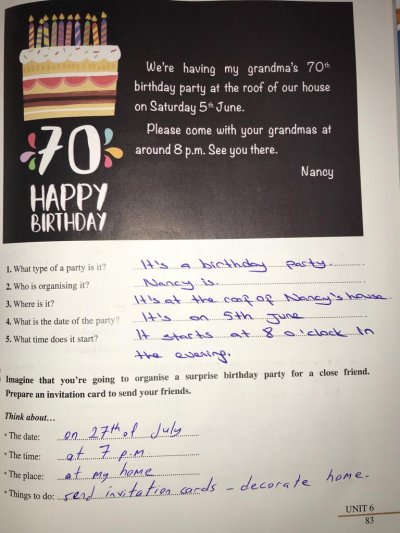 We're having my grandma's 70th
birthday party at the roof of our house
on Saturday 5th June.
Please come with your grandmas at
around 8 p.m. See you there.
Nancy
70
HAPPY
BIRTHDAY
1. What type of a party is it? It's a birthday party.
2. Who is organising it? Nancy is.
3. Where is it? It's at the roof of Nancy's house.
4. What is the date of the party? It's on 5th June
5. What time does it start? It starts at 8 o'clock in
the evening.
Imagine that you're going to organise a surprise birthday party for a close friend.
Prepare an invitation card to send your friends.
Think about...
* The date: on 27th of July
* The time: at 7 p.m
* The place: at my home
* Things to do: send invitation cards - decorate home.
UNIT 6
83